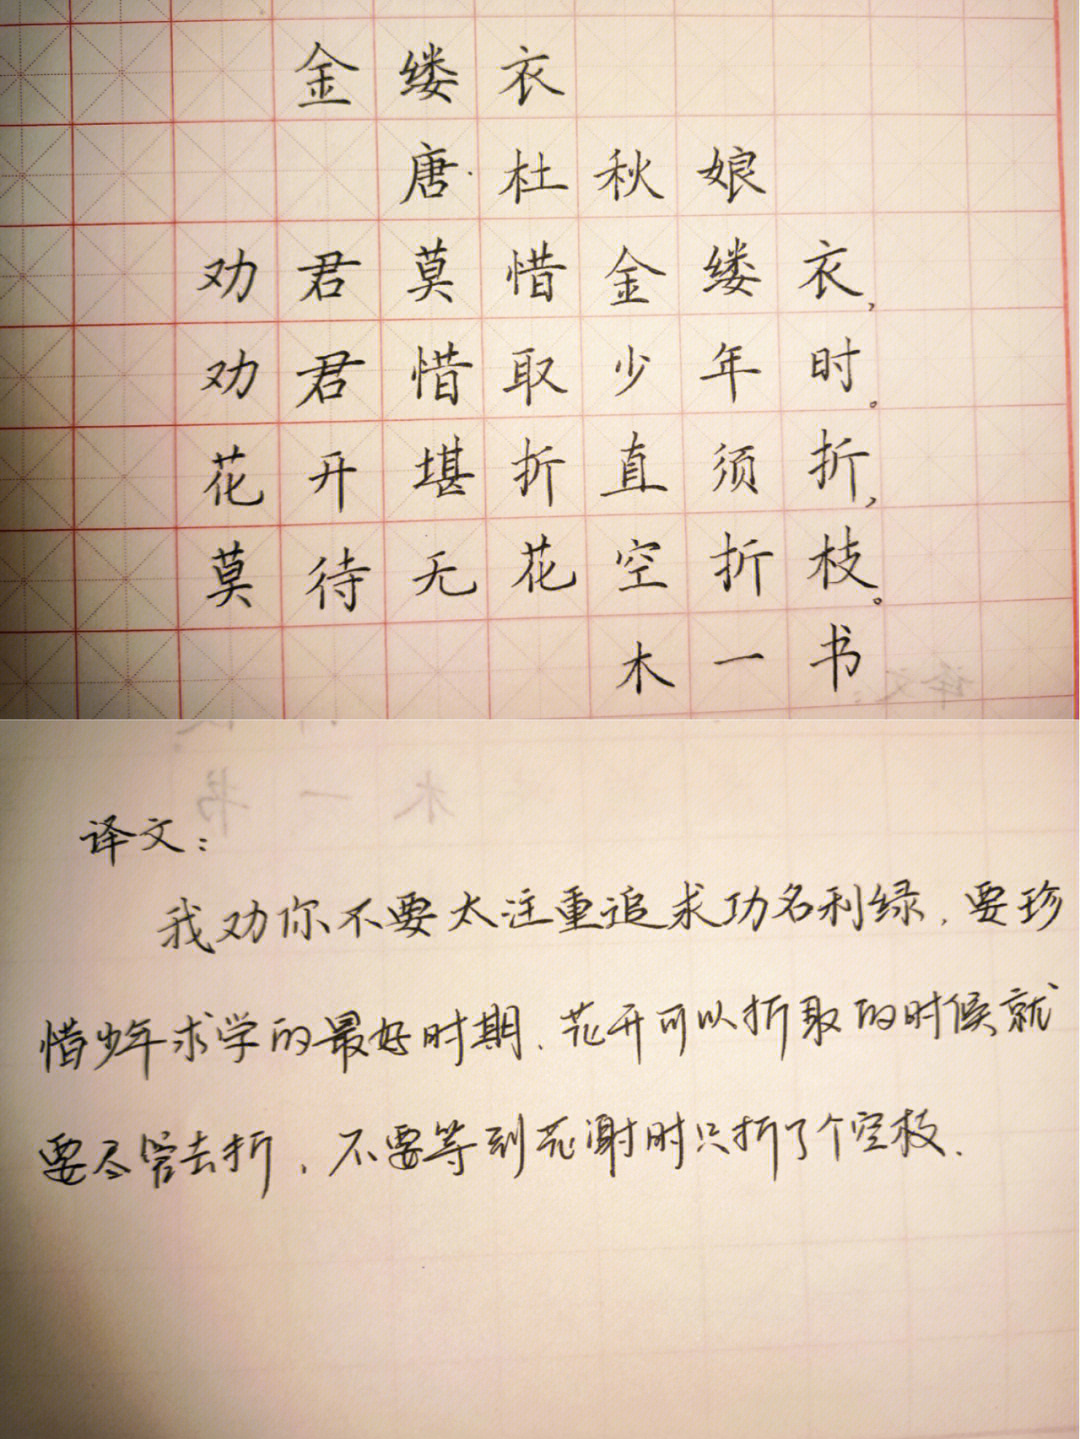 金缕衣
唐·杜秋娘
劝君莫惜金缕衣，
劝君惜取少年时。
花开堪折直须折，
莫待无花空折枝。
木一书
译文：
我劝你不要太注重追求功名利绿，要珍
惜少年求学的最好时期、花开可以折取的时候就
要尽管去折，不要等到花谢时只折了个空枝.